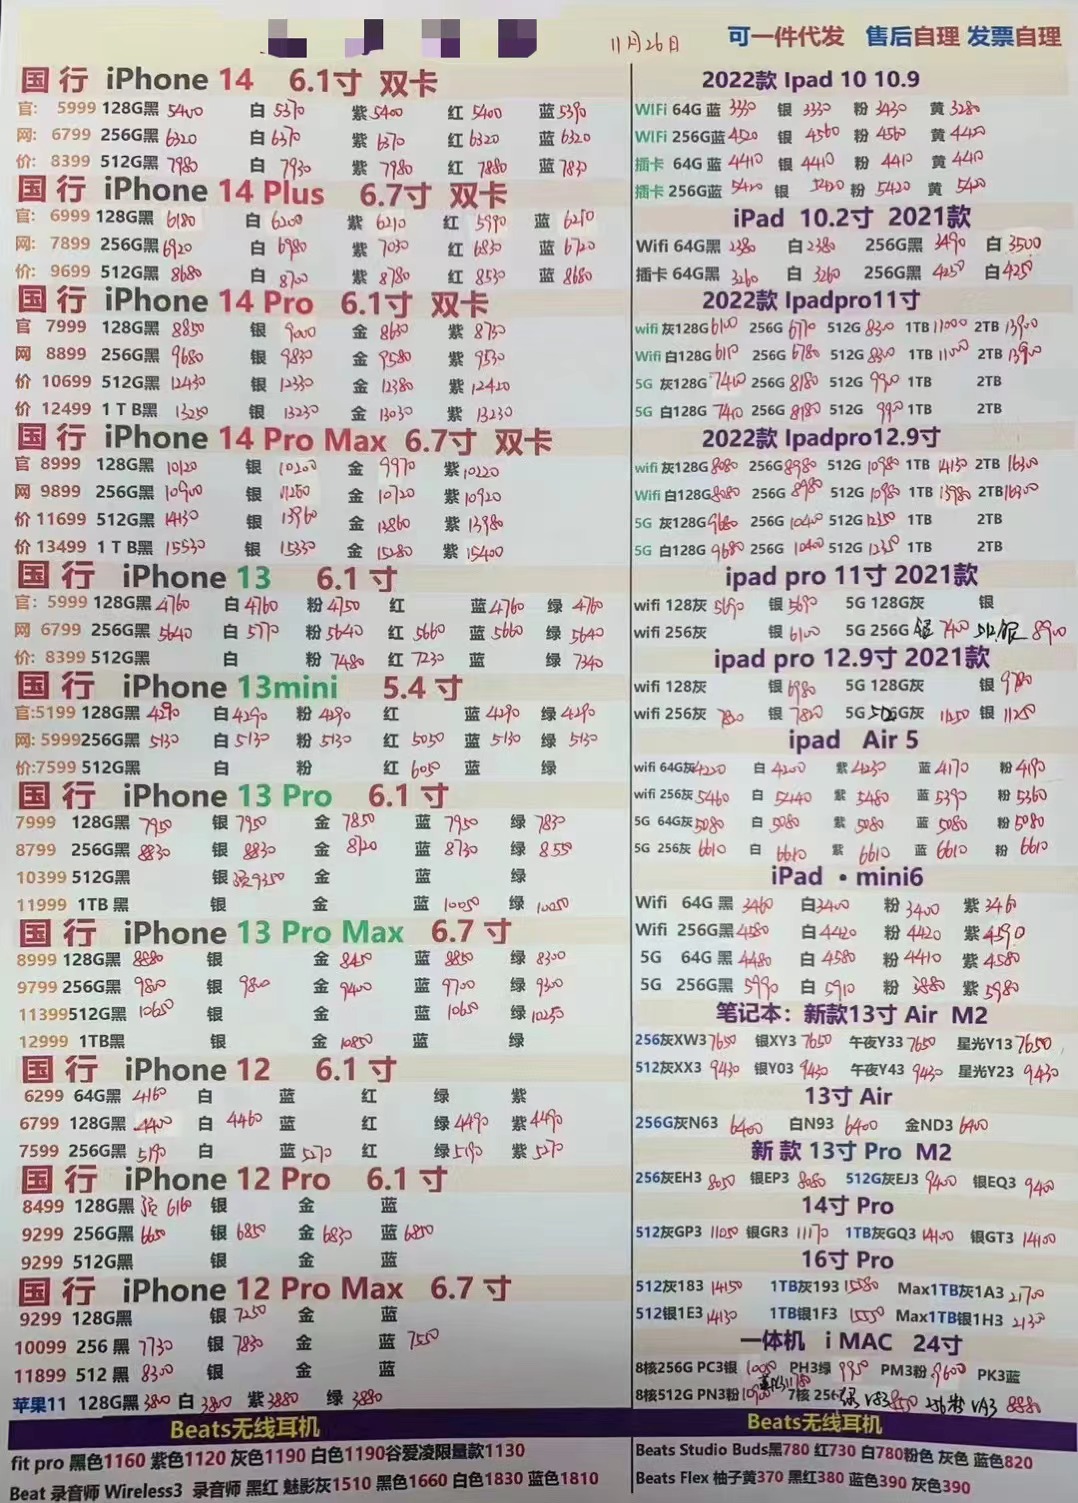 11月26日
可一件代发 售后自理 发票自理
国行 iPhone 14 6.1寸 双卡
官: 5999 128G黑 5400 白 5370 紫 5400 红 5400 蓝 5390
网: 6799 256G黑 6320 白 6370 紫 6370 红 6320 蓝 6320
价: 8399 512G黑 7980 白 7930 紫 7980 红 7880 蓝 7830
国行 iPhone 14 Plus 6.7寸 双卡
官: 6999 128G黑 6180 白 6200 紫 6210 红 5990 蓝 6210
网: 7899 256G黑 6920 白 6980 紫 7030 红 6830 蓝 6720
价: 9699 512G黑 8680 白 8700 紫 8780 红 8530 蓝 8680
国行 iPhone 14 Pro 6.1寸 双卡
官 7999 128G黑 8850 银 9000 金 8630 紫 8730
网 8899 256G黑 9680 银 9830 金 9580 紫 9530
价 10699 512G黑 12430 银 12330 金 12380 紫 12420
价 12499 1 T B黑 13250 银 13230 金 13030 紫 13230
国行 iPhone 14 Pro Max 6.7寸 双卡
官 8999 128G黑 10120 银 10200 金 9970 紫 10220
网 9899 256G黑 10900 银 11260 金 10720 紫 10920
价 11699 512G黑 14130 银 13960 金 13860 紫 13980
价 13499 1 T B黑 15530 银 15330 金 15280 紫 15400
国行 iPhone 13 6.1寸
官: 5999 128G黑 4760 白 4760 粉 4750 红 蓝 4760 绿 4760
网 6799 256G黑 5640 白 5770 粉 5640 红 5660 蓝 5660 绿 5640
价: 8399 512G黑 白 粉 7480 红 7230 蓝 绿 7340
国行 iPhone 13mini 5.4寸
官:5199 128G黑 4290 白 4290 粉 4290 红 蓝 4290 绿 4290
网: 5999256G黑 5130 白 5130 粉 5130 红 5050 蓝 5130 绿 5130
价:7599 512G黑 白 粉 红 6050 蓝 绿
国行 iPhone 13 Pro 6.1寸
7999 128G黑 7950 银 7950 金 7850 蓝 7950 绿 7830
8799 256G黑 8830 银 8830 金 8720 蓝 8730 绿 8550
10399 512G黑 银 9350 金 蓝 绿
11999 1TB 黑 银 金 蓝 10050 绿 10050
国行 iPhone 13 Pro Max 6.7寸
8999 128G黑 8880 银 金 8450 蓝 8850 绿 8300
9799 256G黑 9800 银 9800 金 9400 蓝 9700 绿 9300
11399512G黑 10650 银 金 蓝 10650 绿 10250
12999 1TB黑 银 金 10850 蓝 绿
国行 iPhone 12 6.1寸
6299 64G黑 4160 白 蓝 红 绿 紫
6799 128G黑 4400 白 4460 蓝 红 绿 4490 紫 4490
7599 256G黑 5190 白 蓝 5270 红 绿 5190 紫 5270
国行 iPhone 12 Pro 6.1寸
8499 128G黑 6160 银 金 蓝
9299 256G黑 6650 银 6850 金 6830 蓝 6850
9299 512G黑 银 金 蓝
国行 iPhone 12 Pro Max 6.7寸
9299 128G黑 银 7250 金 蓝
10099 256 黑 7730 银 7830 金 蓝 7550
11899 512 黑 8300 银 金 蓝
苹果11 128G黑 3800 白 3800 紫 3880 绿 3880
Beats无线耳机
fit pro 黑色1160 紫色1120 灰色1190 白色1190谷爱凌限量款1130
Beat 录音师 Wireless3 录音师 黑红 魅影灰1510 黑色1660 白色1830 蓝色1810
2022款 Ipad 10 10.9
WIFi 64G 蓝 3330 银 3330 粉 3430 黄 3280
WIFi 256G蓝 4520 银 4560 粉 4560 黄 4420
插卡 64G 蓝 4410 银 4410 粉 4410 黄 4410
插卡 256G蓝 5420 银 5420 粉 5420 黄 5420
iPad 10.2寸 2021款
Wifi 64G黑 2380 白 2380 256G黑 3490 白 3500
插卡 64G黑 3260 白 3260 256G黑 4250 白 4250
2022款 Ipadpro11寸
wifi 灰128G 6100 256G 6770 512G 8300 1TB 11000 2TB 13900
Wifi 白128G 6110 256G 6780 512G 8300 1TB 11000 2TB 13900
5G 灰128G 7400 256G 8180 512G 9920 1TB 2TB
5G 白128G 7410 256G 8180 512G 9920 1TB 2TB
2022款 Ipadpro12.9寸
wifi 灰128G 8080 256G 8980 512G 10980 1TB 14150 2TB 16300
Wifi 白128G 8080 256G 8980 512G 10980 1TB 13980 2TB 16300
5G 灰128G 9680 256G 10400 512G 12350 1TB 2TB
5G 白128G 9680 256G 10400 512G 12350 1TB 2TB
ipad pro 11寸 2021款
wifi 128灰 5690 银 5690 5G 128G灰 银
wifi 256灰 银 6100 5G 256G 银 7400 512银 8900
ipad pro 12.9寸 2021款
wifi 128灰 银 6980 5G 128G灰 银 9780
wifi 256灰 7820 银 7820 5G 512G灰 11250 银 11250
ipad Air 5
wifi 64G灰 4220 白 4200 紫 4230 蓝 4170 粉 4190
wifi 256灰 5460 白 5440 紫 5480 蓝 5390 粉 5360
5G 64G灰 5080 白 5080 紫 5080 蓝 5080 粉 5080
5G 256灰 6610 白 6610 紫 6610 蓝 6610 粉 6610
iPad • mini6
Wifi 64G 黑 3460 白 3400 粉 3400 紫 3460
Wifi 256G黑 4580 白 4420 粉 4420 紫 4590
5G 64G 黑 4480 白 4580 粉 4410 紫 4580
5G 256G黑 5990 白 5910 粉 3880 紫 5980
笔记本: 新款13寸 Air M2
256灰XW3 7650 银XY3 7650 午夜Y33 7650 星光Y13 7650
512灰XX3 9430 银Y03 9430 午夜Y43 9430 星光Y23 9430
13寸 Air
256G灰N63 6400 白N93 6400 金ND3 6400
新 款 13寸 Pro M2
256灰EH3 8050 银EP3 8080 512G灰EJ3 9400 银EQ3 9400
14寸 Pro
512灰GP3 11050 银GR3 11170 1TB灰GQ3 14100 银GT3 14100
16寸 Pro
512灰183 14150 1TB灰193 15580 Max1TB灰1A3 21700
512银1E3 14130 1TB银1F3 15550 Max1TB银1H3 2130
一体机 i MAC 24寸
8核256G PC3银 PH3绿 9950 PM3粉 9600 PK3蓝
8核512G PN3粉 10900 7核 256 绿 V83 8850 256粉 VA3 8880
Beats无线耳机
Beats Studio Buds黑780 红730 白780粉色 灰色 蓝色820
Beats Flex 柚子黄370 黑红380 蓝色390 灰色390